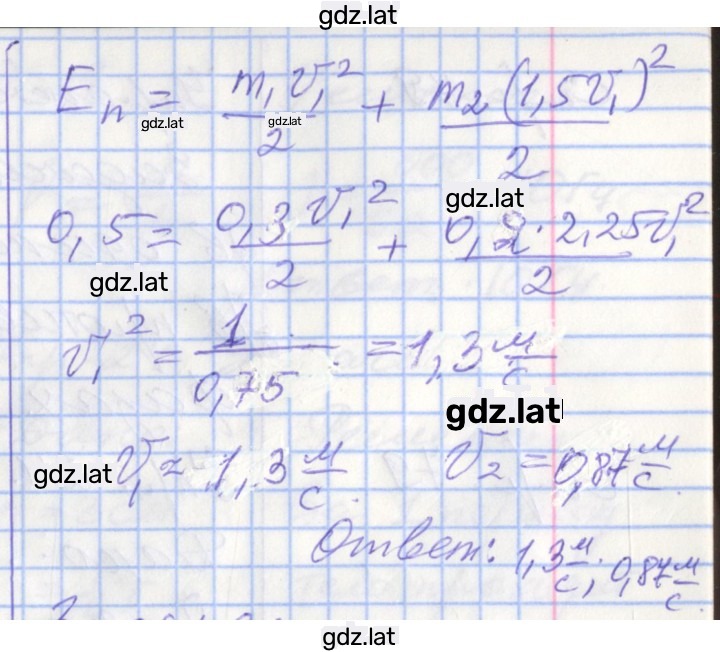 gdz.lat
Eп = m₁v₁²/2 + m₂(1,5v₁)²/2
gdz.lat gdz.lat
gdz.lat
0,5 = 0,3v₁²/2 + 0,2·2,25v₁²/2
gdz.lat
v₁² = 1/0,75 = 1,3 м/с
gdz.lat
gdz.lat v₁ ≈ 1,3 м/с. v₂ = 0,87 м/с.
Ответ: 1,3 м/с; 0,87 м/с.
gdz.lat